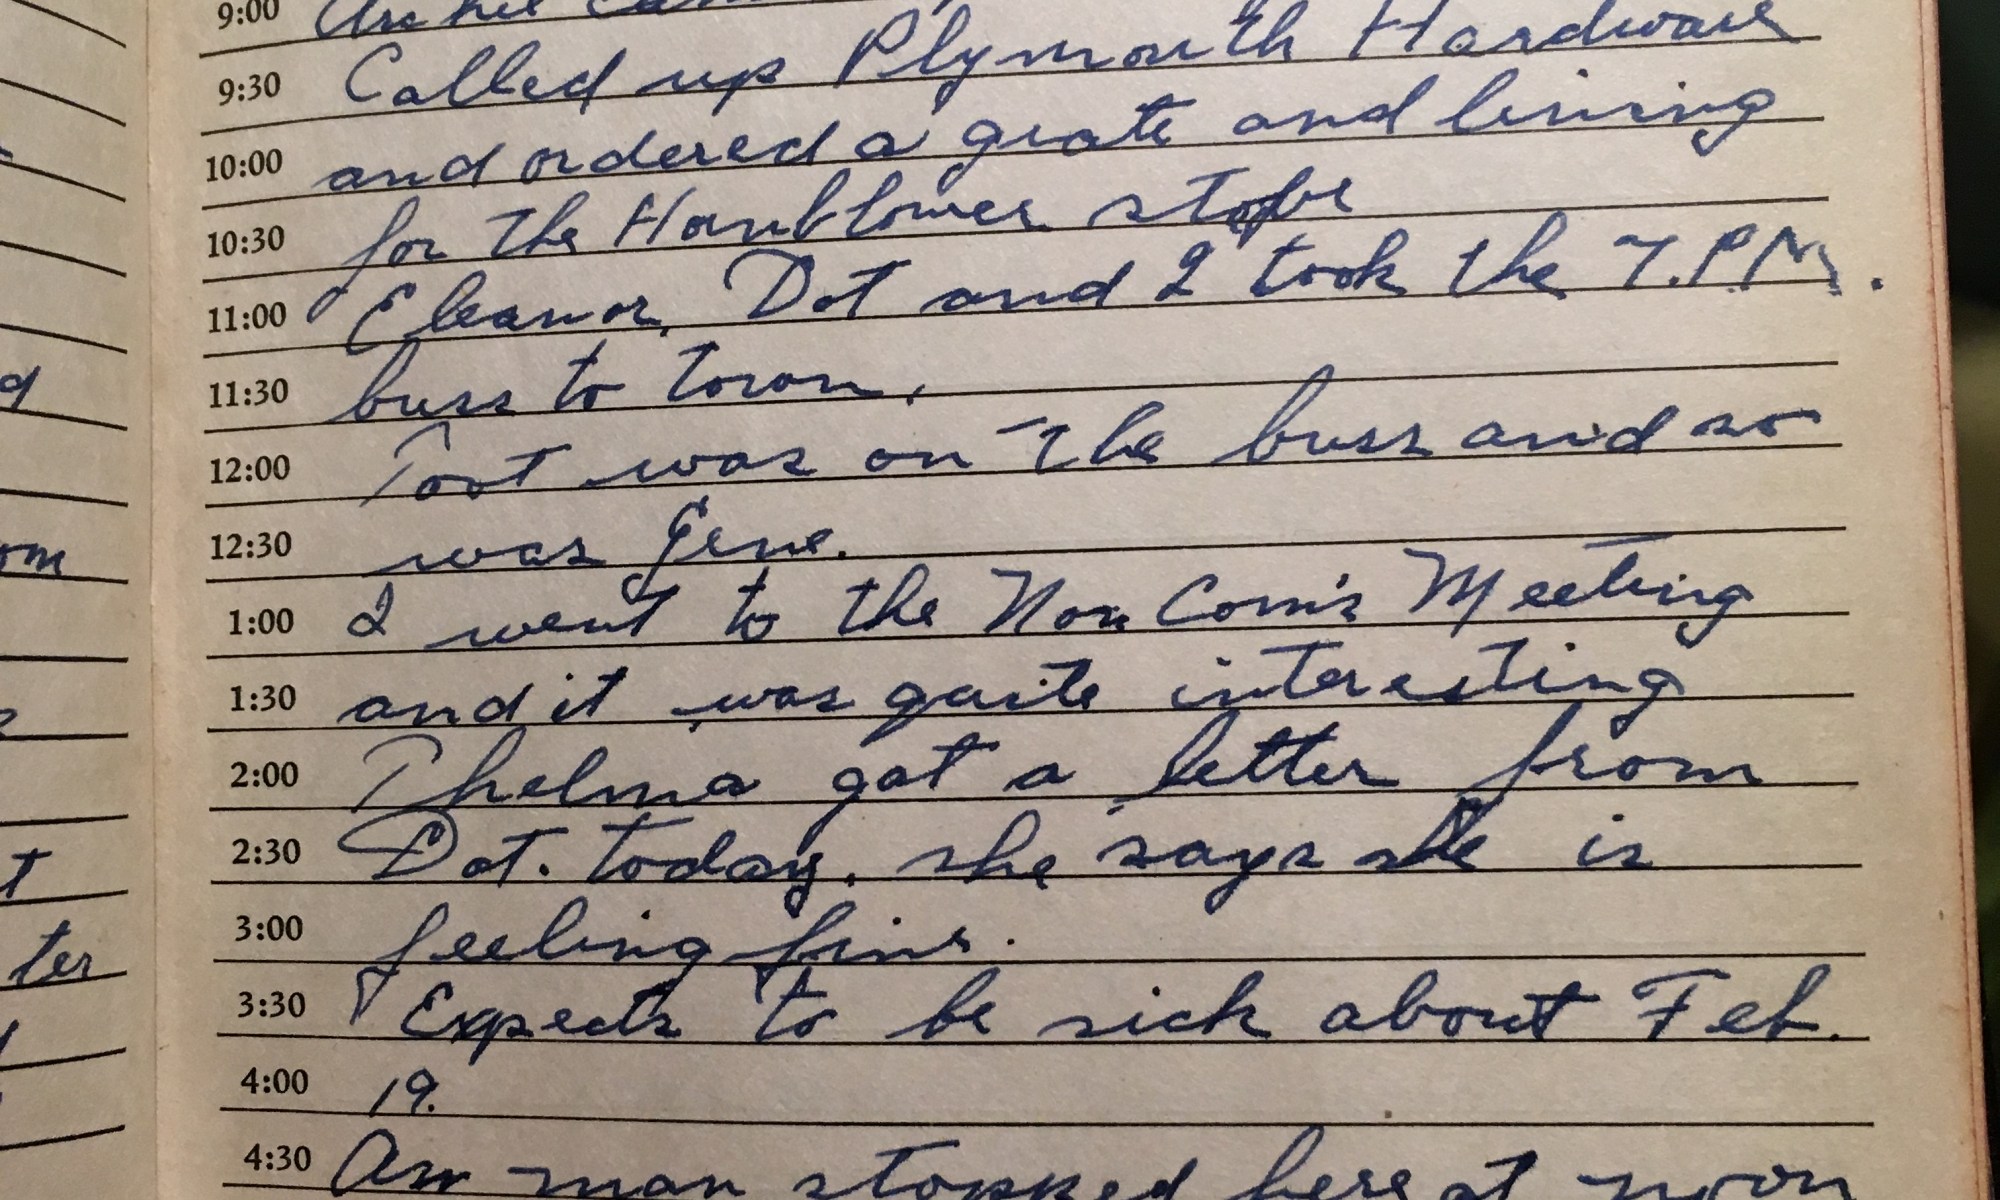 9:00
9:30 Called up Plymouth Hardware
10:00 and ordered a grate and lining
10:30 for the Hornblower stove
11:00 Eleanor, Dot and I took the 7.PM.
11:30 buss to town.
12:00 Toot was on the buss and so
12:30 was Gene.
1:00 I went to the Non Com's Meeting
1:30 and it was quite interesting
2:00 Thelma got a letter from
2:30 Dot. today. she says she is
3:00 feeling fine.
3:30 Expects to be sick about Feb.
4:00 19.
4:30 man stopped here at noon